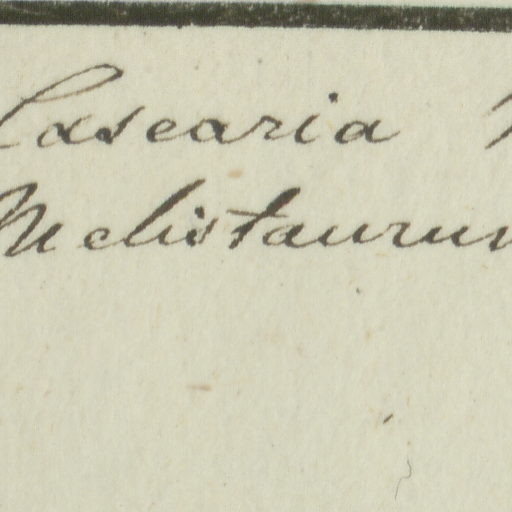 Casearia
Melistaurum